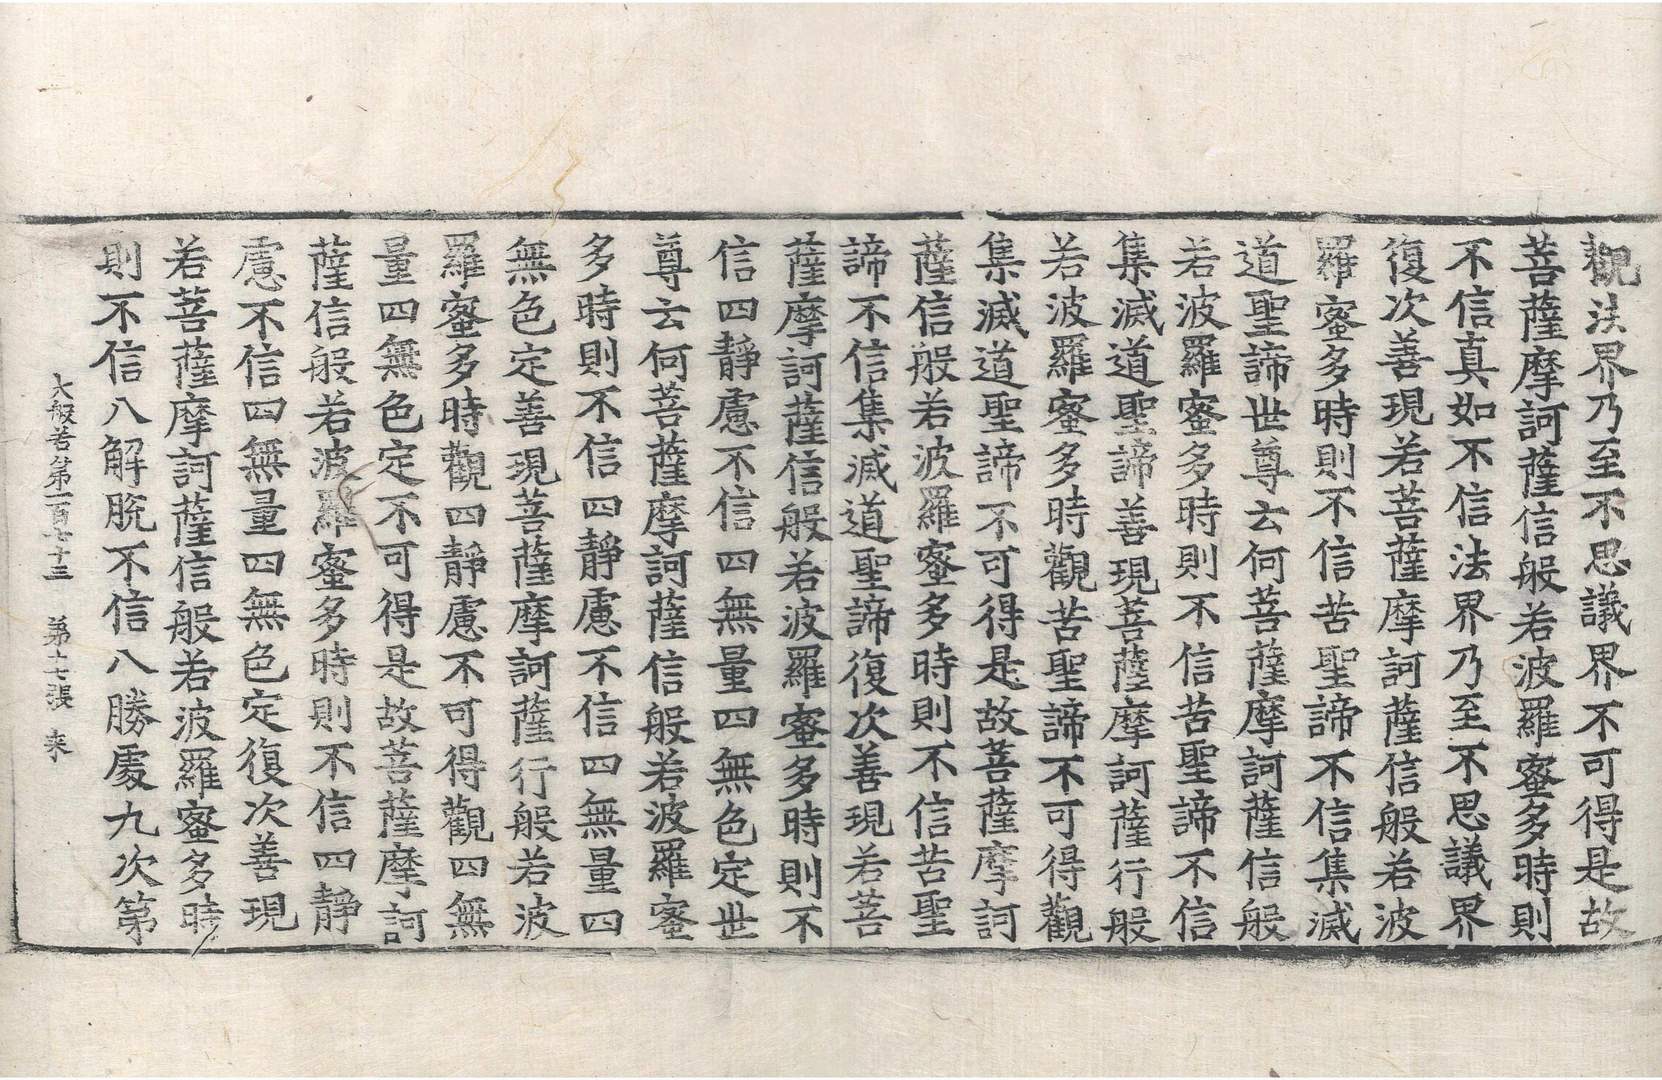 觀法界乃至不思議界不可得是故
菩薩摩訶薩信般若波羅蜜多時則
不信真如不信法界乃至不思議界
復次善現若菩薩摩訶薩信般若波
羅蜜多時則不信苦聖諦不信集滅
道聖諦世尊云何菩薩摩訶薩信般
若波羅蜜多時則不信苦聖諦不信
集滅道聖諦善現菩薩摩訶薩行般
若波羅蜜多時觀苦聖諦不可得觀
集滅道聖諦不可得是故菩薩摩訶
薩信般若波羅蜜多時則不信苦聖
諦不信集滅道聖諦復次善現若菩
薩摩訶薩信般若波羅蜜多時則不
信四靜慮不信四無量四無色定世
尊云何菩薩摩訶薩信般若波羅蜜
多時則不信四靜慮不信四無量四
無色定善現菩薩摩訶薩行般若波
羅蜜多時觀四靜慮不可得觀四無
量四無色定不可得是故菩薩摩訶
薩信般若波羅蜜多時則不信四靜
慮不信四無量四無色定復次善現
若菩薩摩訶薩信般若波羅蜜多時
則不信八解脫不信八勝處九次第
大般若第一百七十三 第十七張 来